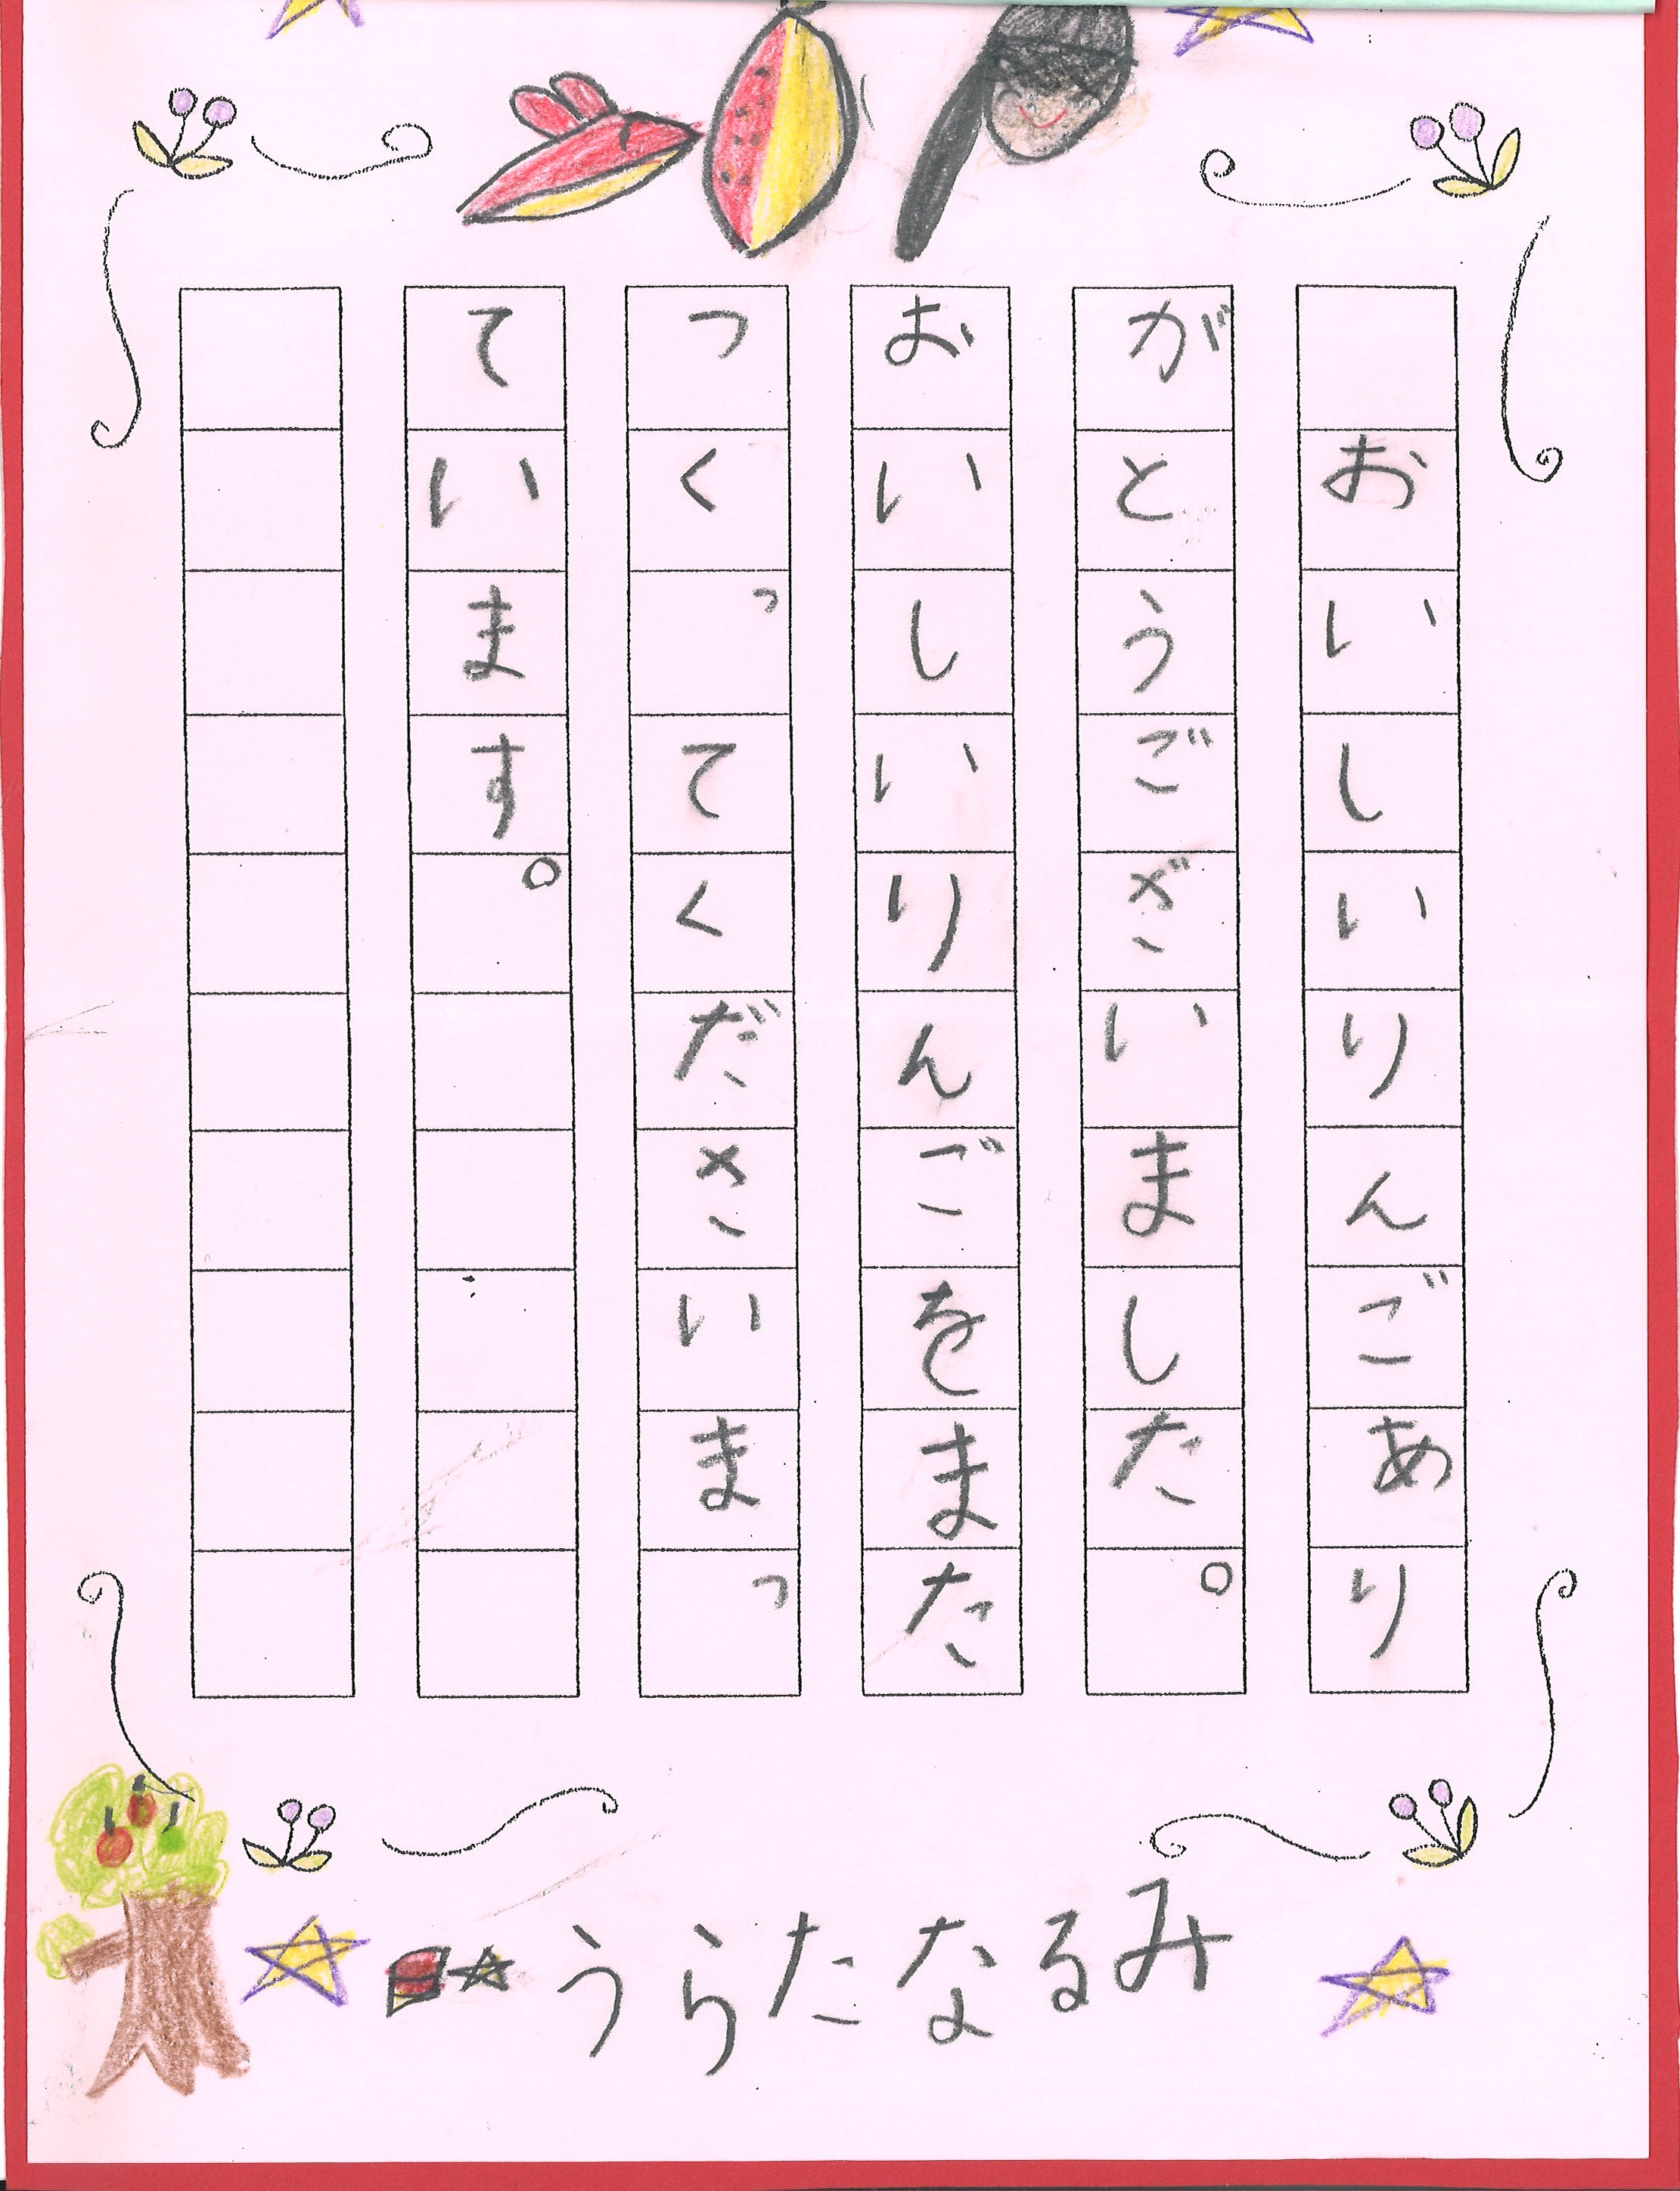 おいしいりんごあり
がとうございました。
おいしいりんごをまた
つくってくださいまっ
ています。
うらたなるみ